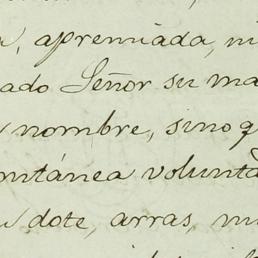 , apremiada, ni
ado Señor su ma
nombre, sino q
ntánea volunta
dote, arras, ni